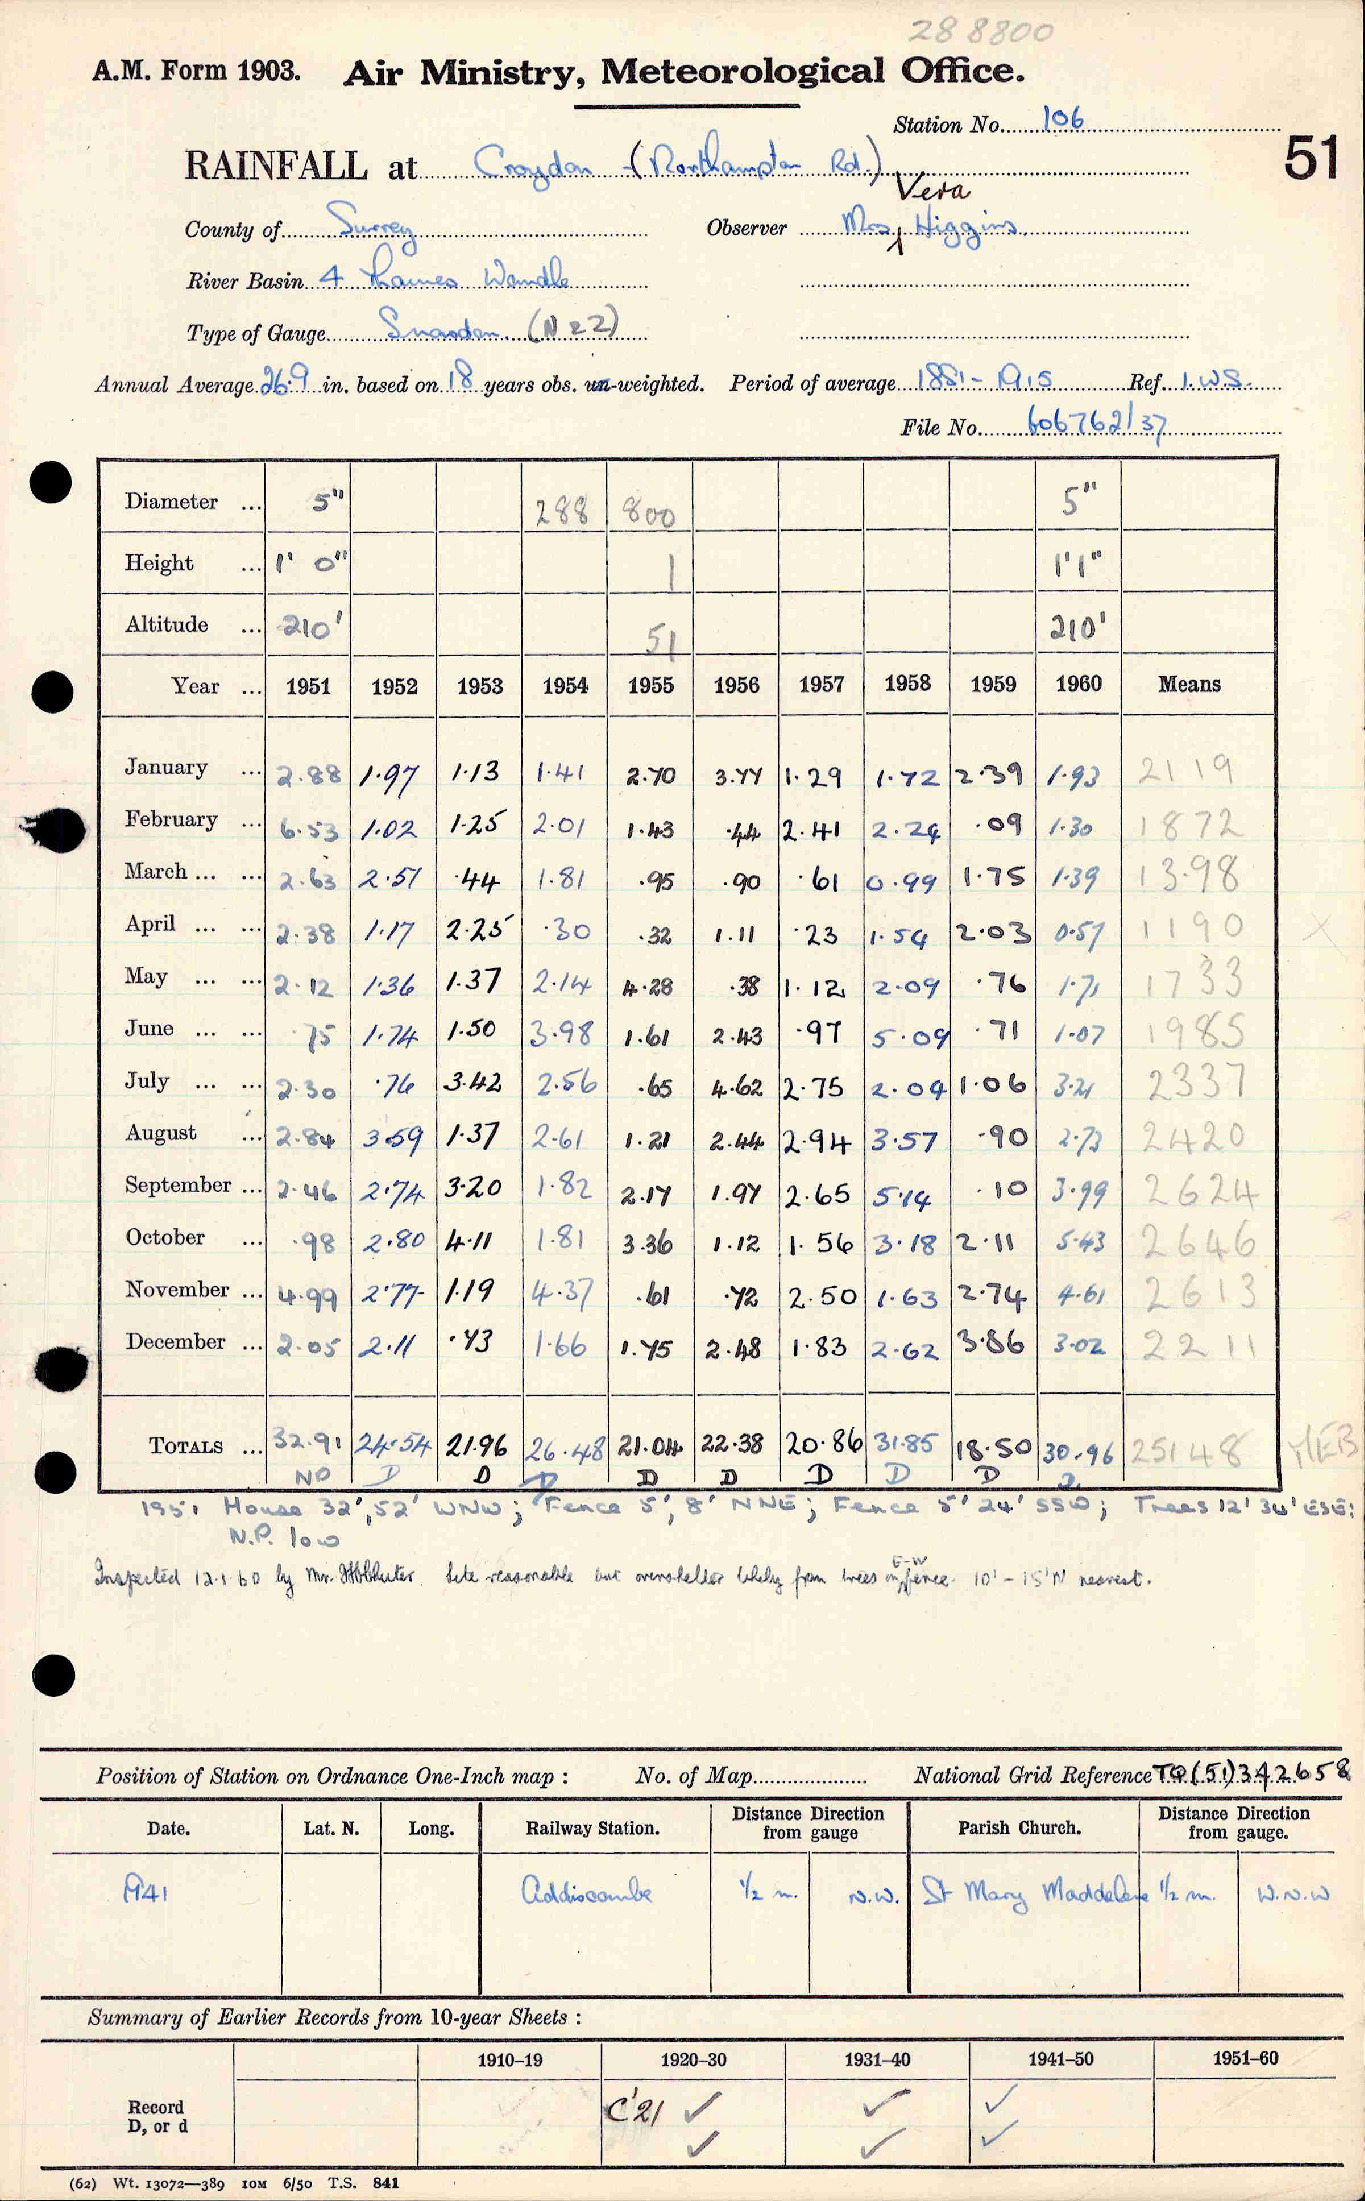 28 8800
A.M. Form 1903. Air Ministry, Meteorological Office.
Station No. 106
51
RAINFALL at Croydon - (Northampton Rd.)
Vera
County of Surrey Observer Mrs Higgins
River Basin 4 Thames Wandle
Type of Gauge Snowdon (N 22)
Annual Average 26.9 in. based on 18 years obs. un-weighted. Period of average 1881-1915 Ref. I.W.S.
File No. 606762/37
Diameter ... 5" 288 800 5"
Height ... 1' 0" 1 1'1"
Altitude ... 210' 51 210'
Year ... 1951 1952 1953 1954 1955 1956 1957 1958 1959 1960 Means
January ... 2.88 1.97 1.13 1.41 2.70 3.77 1.29 1.72 2.39 1.93 2119
February ... 6.53 1.02 1.25 2.01 1.43 .44 2.41 2.24 .09 1.30 1872
March ... ... 2.63 2.51 .44 1.81 .95 .90 .61 0.99 1.75 1.39 13.98
April ... ... 2.38 1.17 2.25 .30 .32 1.11 .23 1.54 2.03 0.57 1190 X
May ... ... 2.12 1.36 1.37 2.14 4.28 .38 1.12 2.09 .76 1.71 1733
June ... ... .75 1.74 1.50 3.98 1.61 2.43 .97 5.09 .71 1.07 1985
July ... ... 2.30 .76 3.42 2.56 .65 4.62 2.75 2.04 1.06 3.21 2337
August ... 2.84 3.59 1.37 2.61 1.21 2.44 2.94 3.57 .90 2.73 2420
September ... 2.46 2.74 3.20 1.82 2.17 1.97 2.65 5.14 .10 3.99 2624
October ... .98 2.80 4.11 1.81 3.36 1.12 1.56 3.18 2.11 5.43 2646
November ... 4.99 2.77 1.19 4.37 .61 .72 2.50 1.63 2.74 4.61 2613
December ... 2.05 2.11 .73 1.66 1.75 2.48 1.83 2.62 3.86 3.02 2211
TOTALS ... 32.91 24.54 21.96 26.48 21.04 22.38 20.86 31.85 18.50 30.96 25148 MEB
NP D D D D D D D D D
1951 House 32', 52' WNW; Fence 5', 8' NNE; Fence 5' 24' SSW; Trees 12' 34' ESE;
N.P. low
E-W
Inspected 12.1.60 by Mr. Site reasonable but overshelter likely from trees on fence 10'-15' N nearest.
Position of Station on Ordnance One-Inch map : No. of Map National Grid Reference TQ (51) 342658
Date. Lat. N. Long. Railway Station. Distance Direction from gauge Parish Church. Distance Direction from gauge.
1941 Addiscombe 1/2 m. N.W. St Mary Maddelene 1/2 m. W.N.W
Summary of Earlier Records from 10-year Sheets :
1910–19 1920–30 1931–40 1941–50 1951–60
Record C'21 ✓ ✓ ✓
D, or d ✓ ✓ ✓
(62) Wt. 13072—389 10M 6/50 T.S. 841